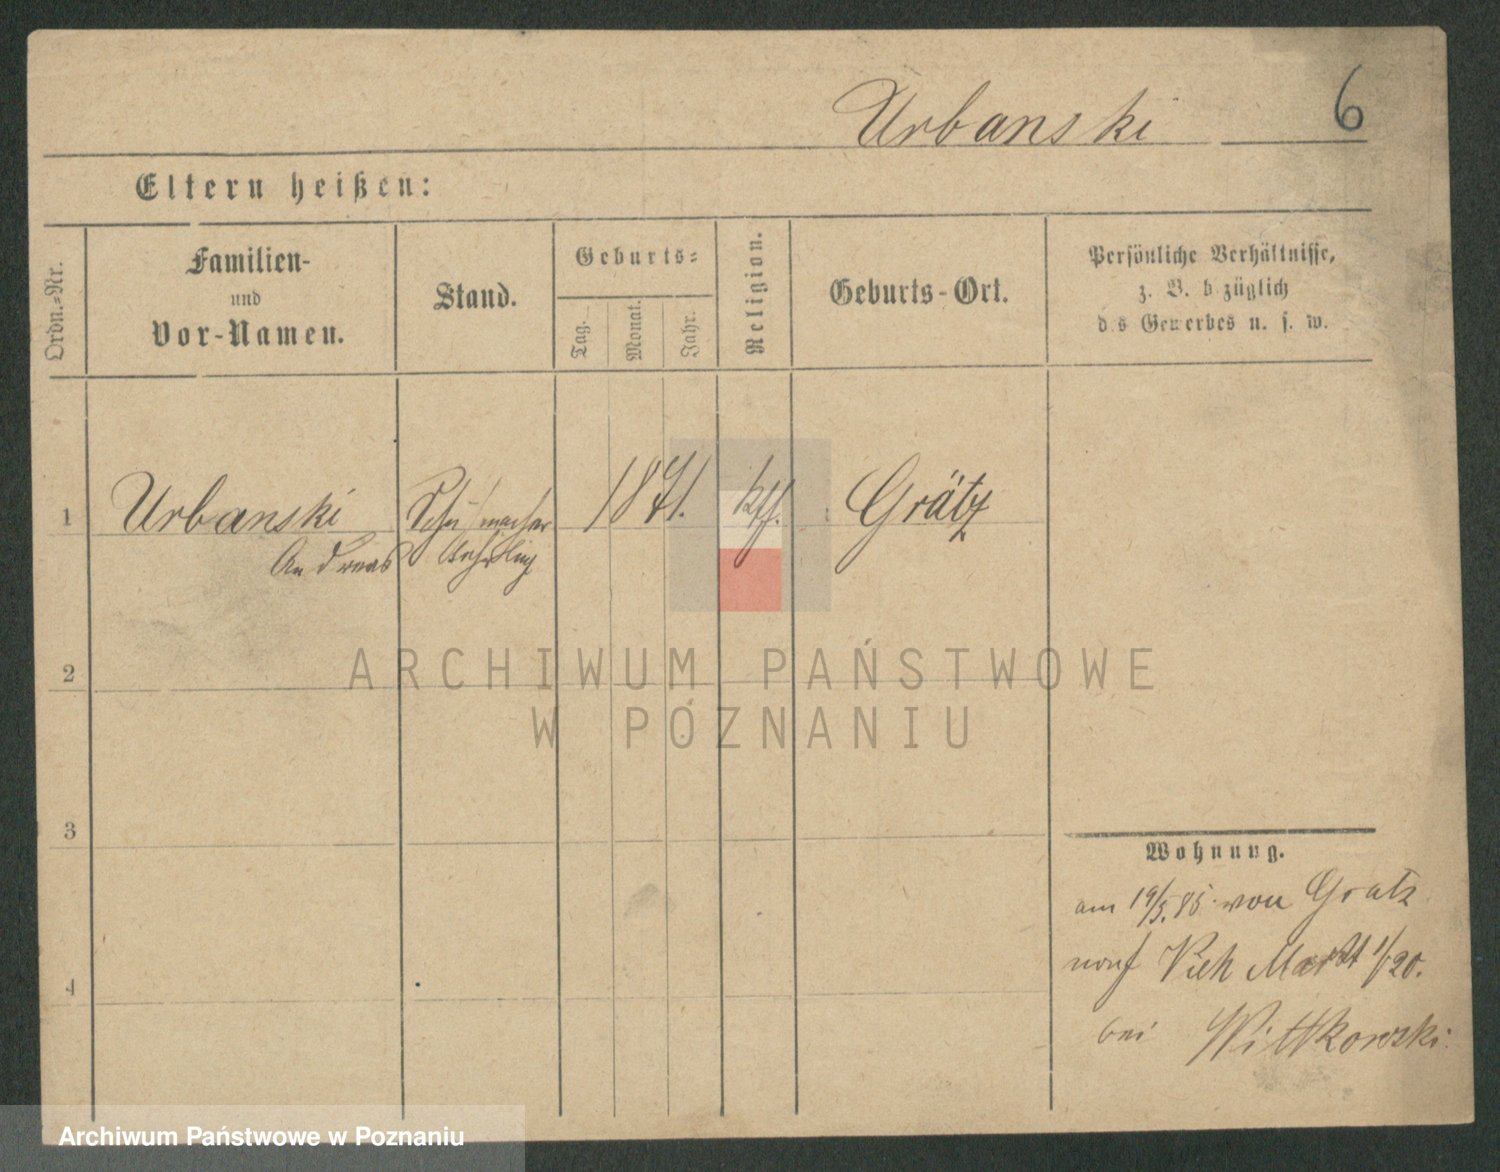 Urbanski
6
Eltern heißen:
Ordn.-Nr.
Familien-
und
Vor-Namen.
Stand.
Geburts-
Tag.
Monat.
Jahr.
Religion.
Geburts-Ort.
Persönliche Verhältnisse,
z. B. b züglich
d s Gewerbes u. s. w.
1
Urbanski
Andreas
Schuhmacher
Lehrling
1871.
kth.
Grätz
2
ARCHIWUM PAŃSTWOWE
W POZNANIU
3
Wohnung.
am 19/5. 85 von Gratz
nach Vieh Markt 1/20.
4
bei Wittkowski
Archiwum Państwowe w Poznaniu